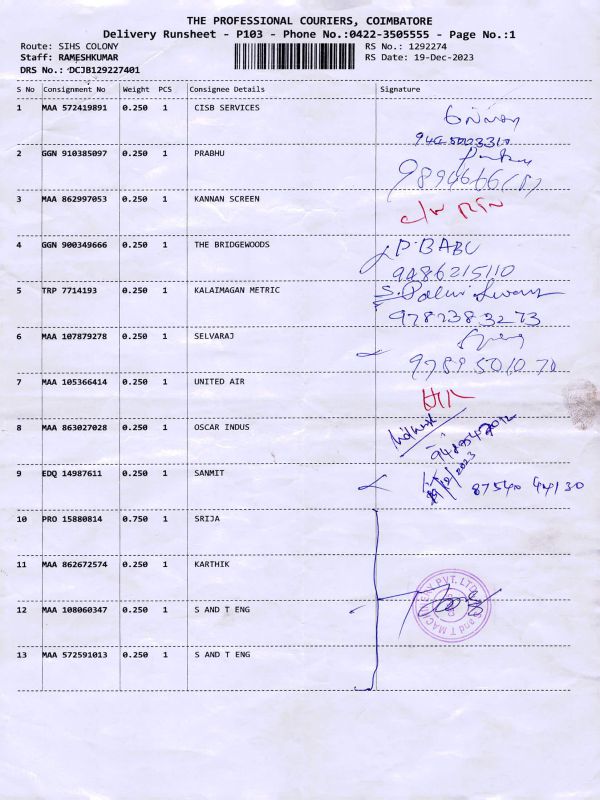 THE PROFESSIONAL COURIERS, COIMBATORE
Delivery Runsheet - P103 - Phone No.:0422-3505555 - Page No.:1
Route: SIHS COLONY RS No.: 1292274
Staff: RAMESHKUMAR RS Date: 19-Dec-2023
DRS No.: DCJB129227401
S No Consignment No Weight PCS Consignee Details Signature
1 MAA 572419891 0.250 1 CISB SERVICES
2 GGN 910385097 0.250 1 PRABHU
3 MAA 862997053 0.250 1 KANNAN SCREEN
4 GGN 900349666 0.250 1 THE BRIDGEWOODS P. BABU
9486215110
5 TRP 7714193 0.250 1 KALAIMAGAN METRIC
9787383273
6 MAA 107879278 0.250 1 SELVARAJ
9789501070
7 MAA 105366414 0.250 1 UNITED AIR
8 MAA 863027028 0.250 1 OSCAR INDUS
9 EDQ 14987611 0.250 1 SANMIT 87540 44130
10 PRO 15880814 0.750 1 SRIJA
11 MAA 862672574 0.250 1 KARTHIK
12 MAA 108060347 0.250 1 S AND T ENG
13 MAA 572591013 0.250 1 S AND T ENG